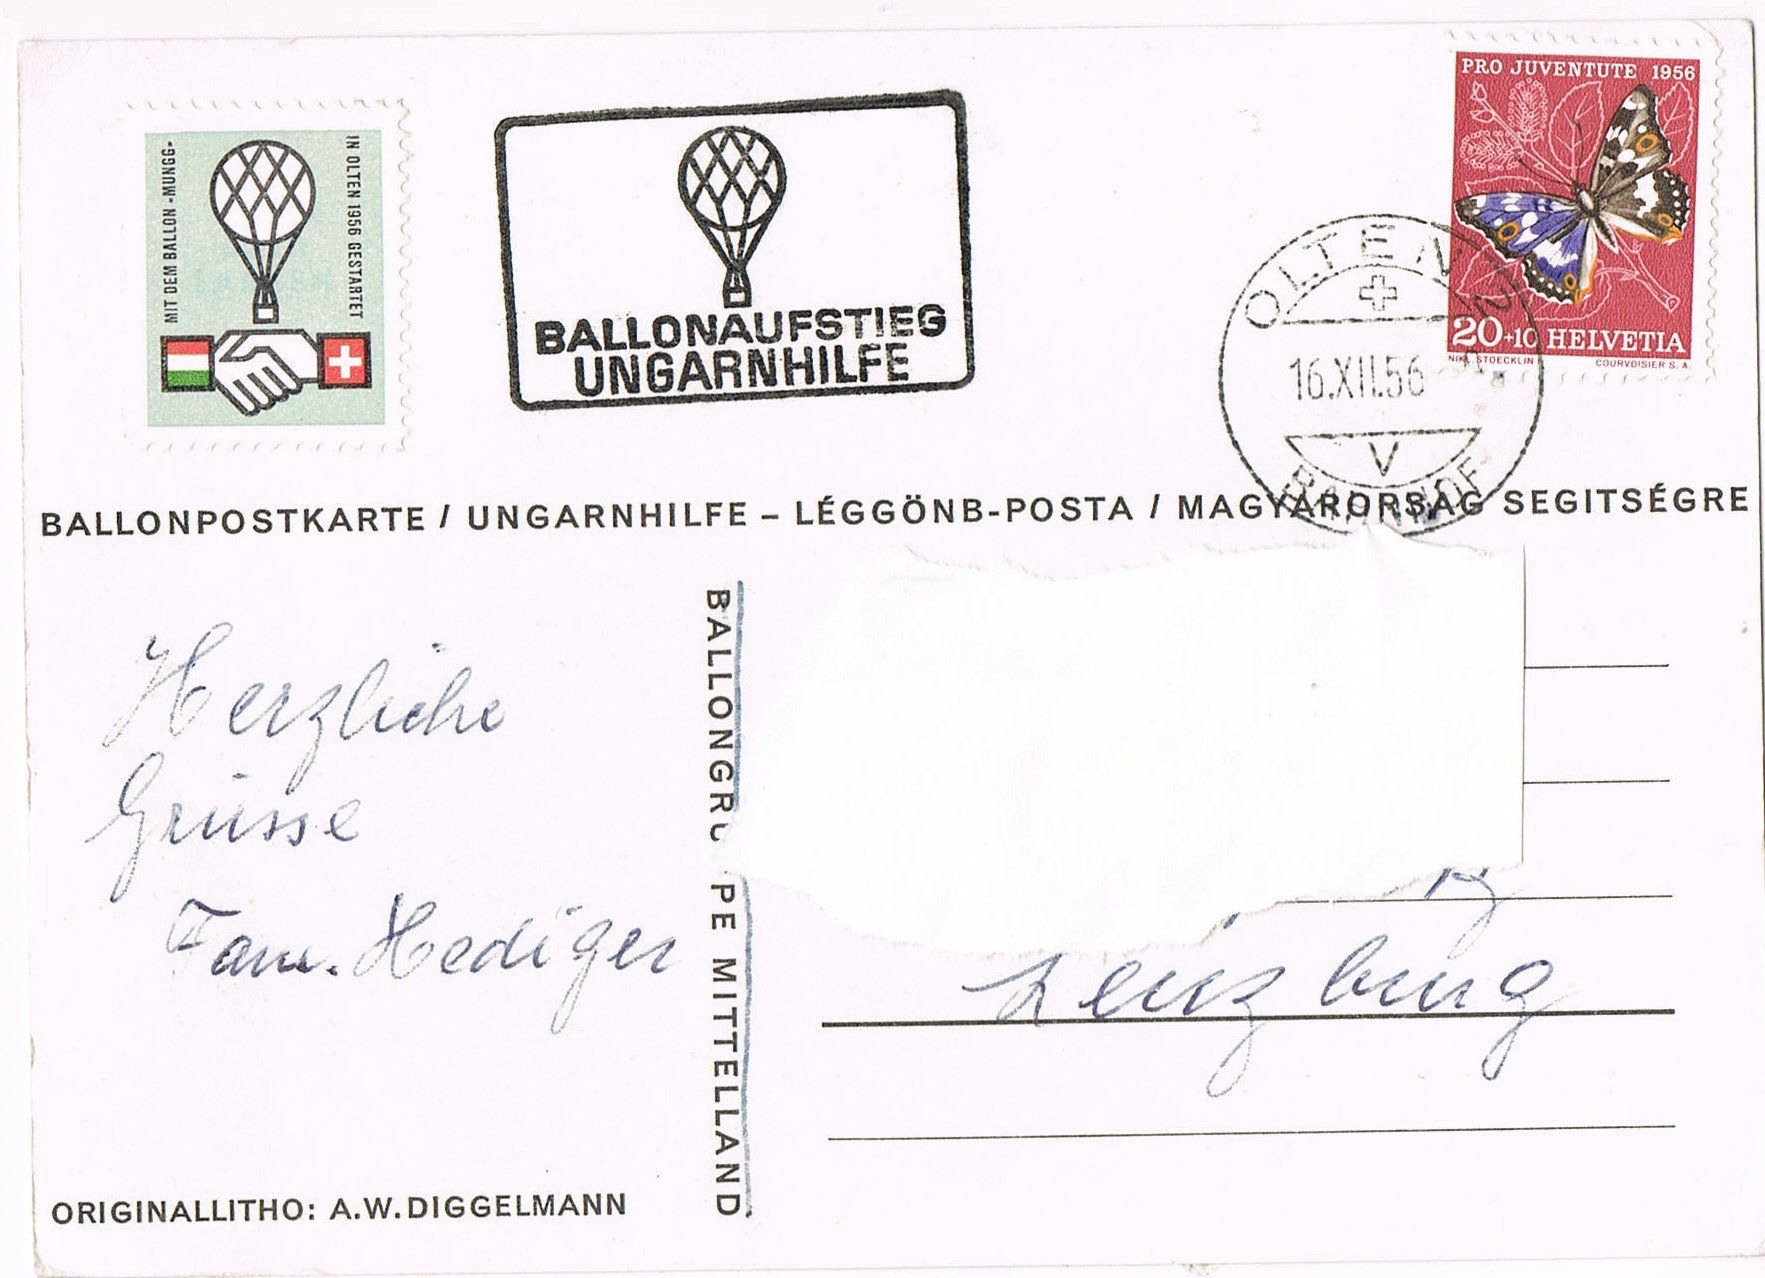 MIT DEM BALLON -MUNGG-
IN OLTEN 1956 GESTARTET
BALLONAUFSTIEG
UNGARNHILFE
PRO JUVENTUTE 1956
20+10 HELVETIA
NIK. STOECKLIN
COURVOISIER S.A.
OLTEN 2
16.XII.56
V
BAHNHOF
BALLONPOSTKARTE / UNGARNHILFE – LÉGGÖNB-POSTA / MAGYARORSAG SEGITSÉGRE
Herzliche
Grüsse
Fam. Hediger
BALLONGRUPPE MITTELLAND
Lenzburg
ORIGINALLITHO: A.W.DIGGELMANN